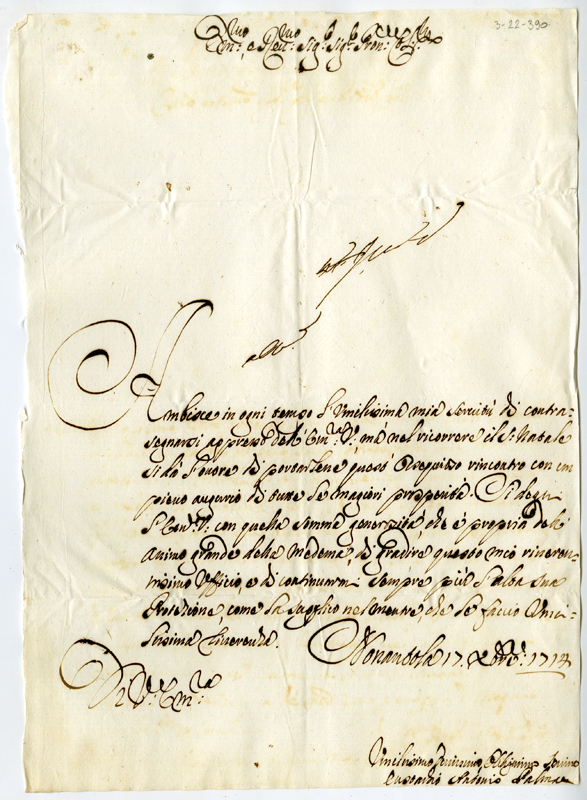 3-22-390
Em.mo e Re.mo Sig.r Sig.r Pron. Col.mo
Ambisce in ogni tempo l'Umilissima mia servitù di contra-
segnarsi appresso dell'Em.za V., mà nel ricorrere il S. Natale
si dà l'onore di portarlene quest'ossequioso rincontro con un
pieno augurio di tutte le magiori prosperità. Si degni
l'Em.V. con quella somma generosità, che è propria dell'
animo grande della Medema, di gradire questo mio riveren-
tissimo Ufficio, e di continuarmi sempre più l'alta sua
Protezione, come la supplico nel mentre, che le faccio Umi-
lissima riverenza. Nonantola 17. Xbre 171
Di V. Em.za
Umilissimo Servitore
Antonio